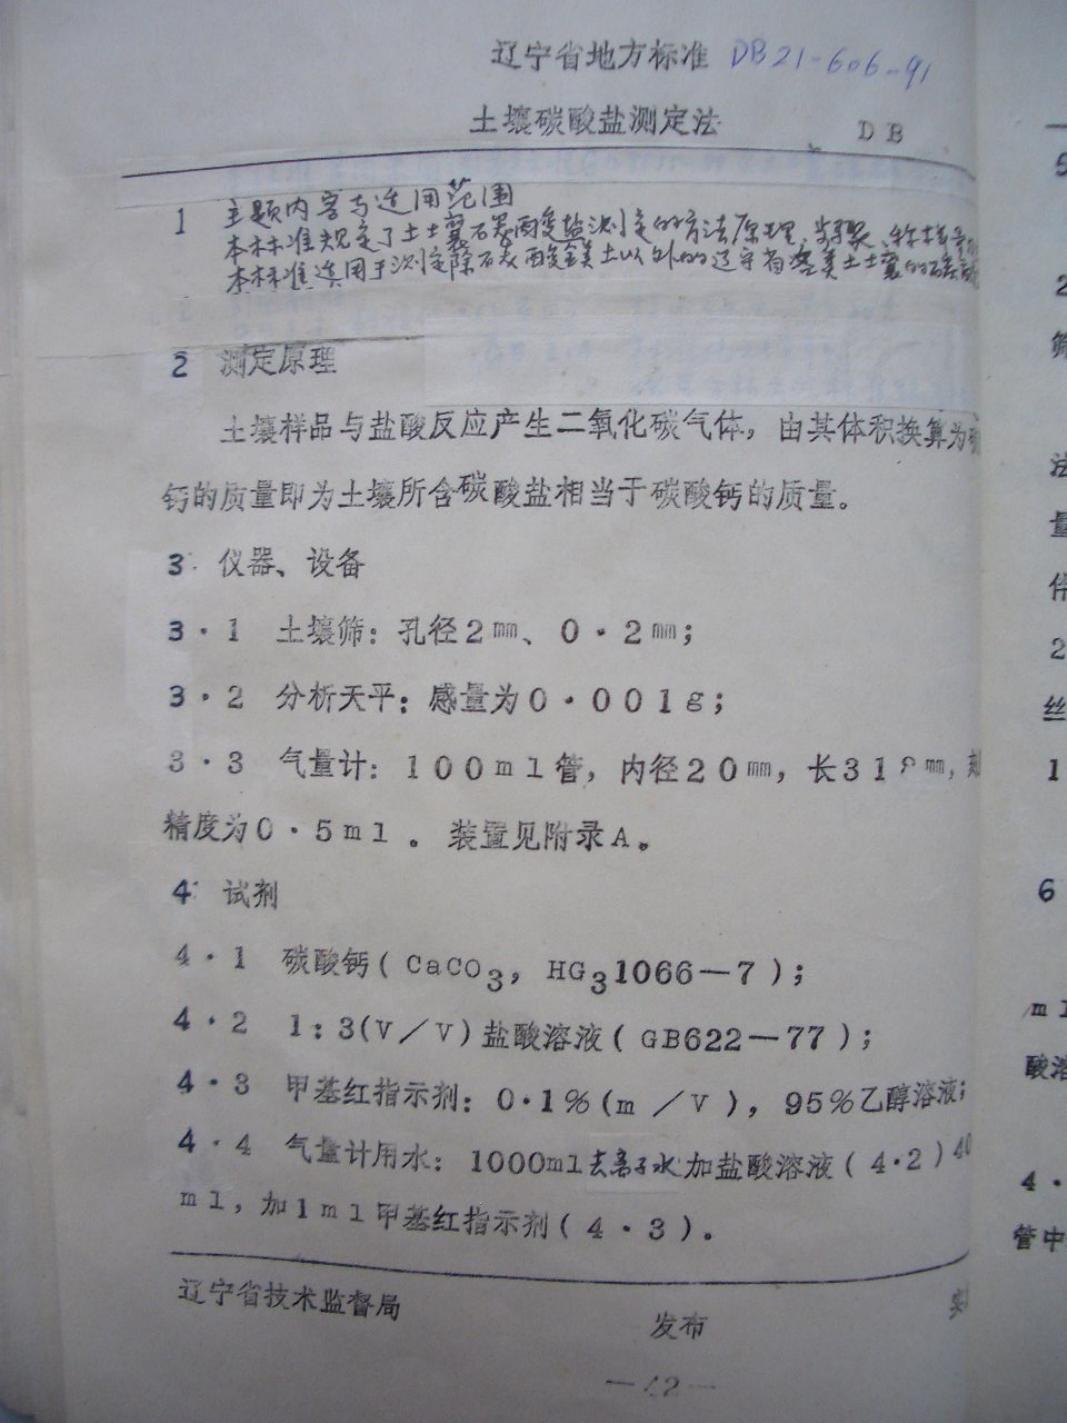 辽宁省地方标准 DB21-606-91
土壤碳酸盐测定法 DB
1 主题内容与适用范围
本标准规定了土壤碳酸盐测定的方法原理、步骤、
本标准适用于测定除碳酸镁土以外的辽宁省各类土壤的碳酸
2 测定原理
土壤样品与盐酸反应产生二氧化碳气体，由其体积换算为
钙的质量即为土壤所含碳酸盐相当于碳酸钙的质量。
3 仪器、设备
3·1 土壤筛：孔径2mm、0·2mm；
3·2 分析天平：感量为0·001g；
3·3 气量计：100ml管，内径20mm，长31 mm，刻
精度为0·5ml。装置见附录A。
4 试剂
4·1 碳酸钙(CaCO3，HG31066—7)；
4·2 1：3(V／V)盐酸溶液(GB622—77)；
4·3 甲基红指示剂：0·1%(m／V)，95%乙醇溶液；
4·4 气量计用水：1000ml去离子水加盐酸溶液(4·2)40
ml，加1ml甲基红指示剂(4·3)。
辽宁省技术监督局 发布
—42—
5
2
筛
法
量
2
丝
1
6
ml
酸溶
4·
管中